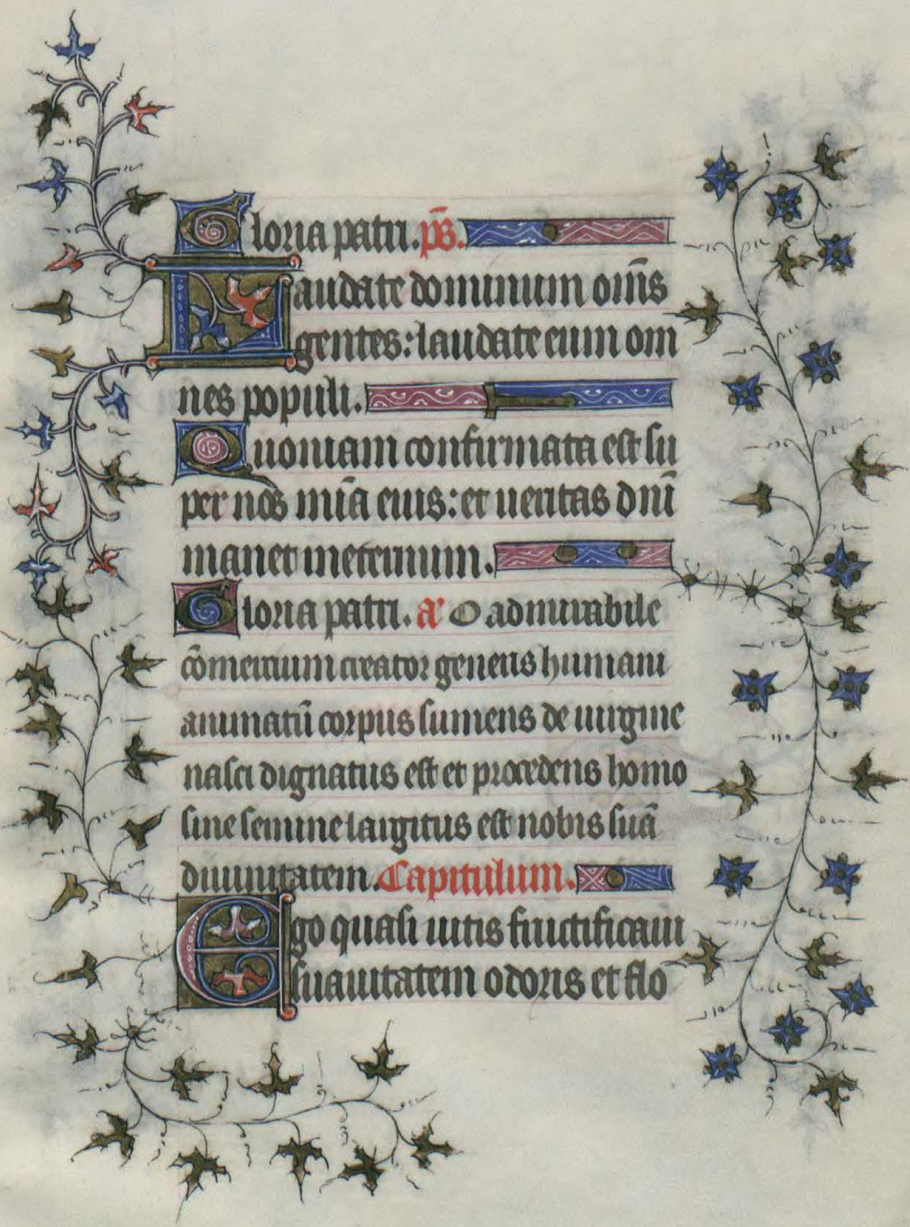 Gloria patri. p̄s.
Laudate dominum om̄s
gentes: laudate eum om
nes populi.
Quoniam confirmata est su
per nos mīa eius: et ueritas dn̄i
manet ineternum.
Gloria patri. a᷒ O admirabile
cōmercium creator generis humani
animatū corpus sumens de uirgine
nasci dignatus est et procedens homo
sine semine largitus est nobis suā
diuinitatem. Capitulum.
Ego quasi uitis fructificaui
suauitatem odoris et flo